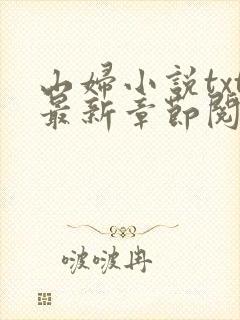 山婦小説txt
最新章節閱
啵啵冉